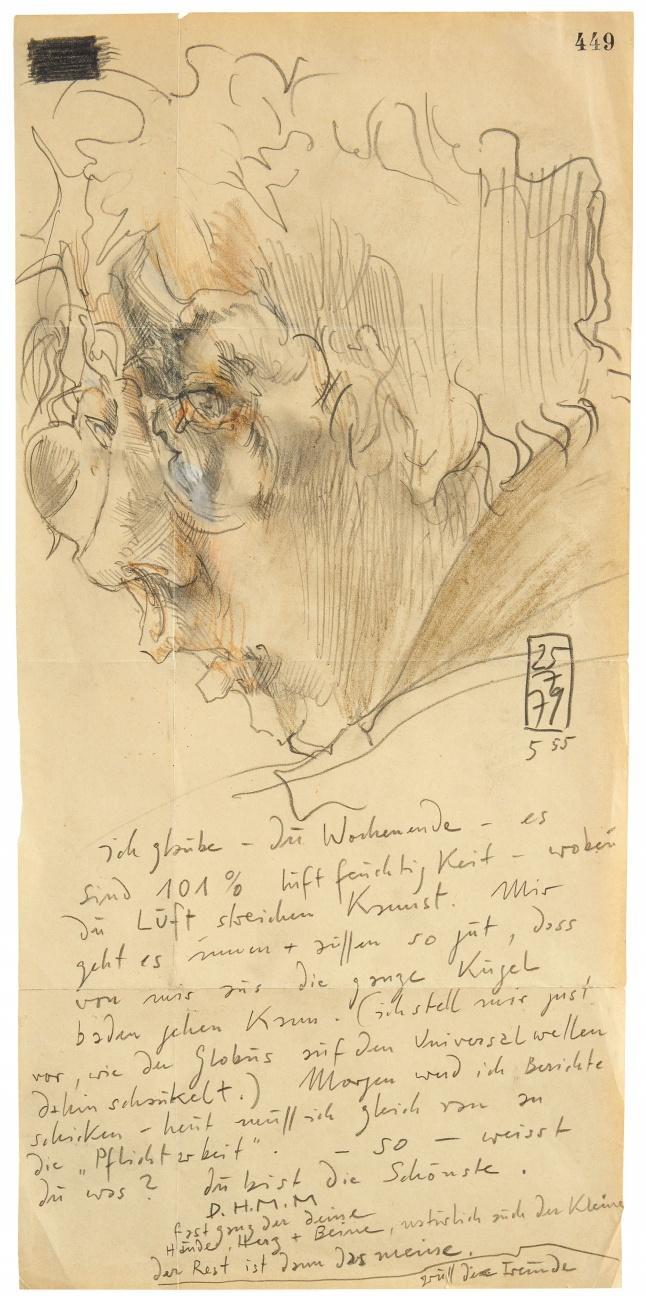 449
25
7
79
5 55
ich glaube – Wochenende – es
sind 101 % Luftfeuchtigkeit – wobei
du Luft streichen kannst. Mir
geht es innen + aussen so gut, dass
von mir aus die ganze Kugel
baden gehen kann. (ich stell mir just
vor, wie der Globus auf den Universalwellen
dahin schaukelt.) Morgen werd ich Berichte
schicken – heut muss ich gleich ran an
die „Pflichtarbeit". – so – weisst
du was? du bist die Schönste.
D.H.M.M
fast ganz der deine
Hände, Herz + Beine, natürlich auch der Kleine
der Rest ist dann das meine.
grüss die Freunde